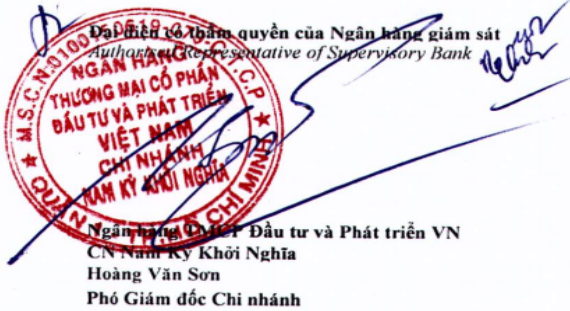 Đại diện có thẩm quyền của Ngân hàng giám sát
Authorized Representative of Supervisory Bank
M.S.C.N:
NGÂN HÀNG
T.C.P
THƯƠNG MẠI CỔ PHẦN
ĐẦU TƯ VÀ PHÁT TRIỂN
VIỆT NAM
CHI NHÁNH
NAM KỲ KHỞI NGHĨA
QUẬN 1 - TP. HỒ CHÍ MINH
Ngân hàng TMCP Đầu tư và Phát triển VN
CN Nam Kỳ Khởi Nghĩa
Hoàng Văn Sơn
Phó Giám đốc Chi nhánh